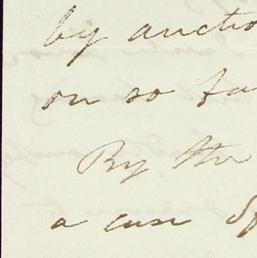 by auctio
on so fa
By the
a case Sp